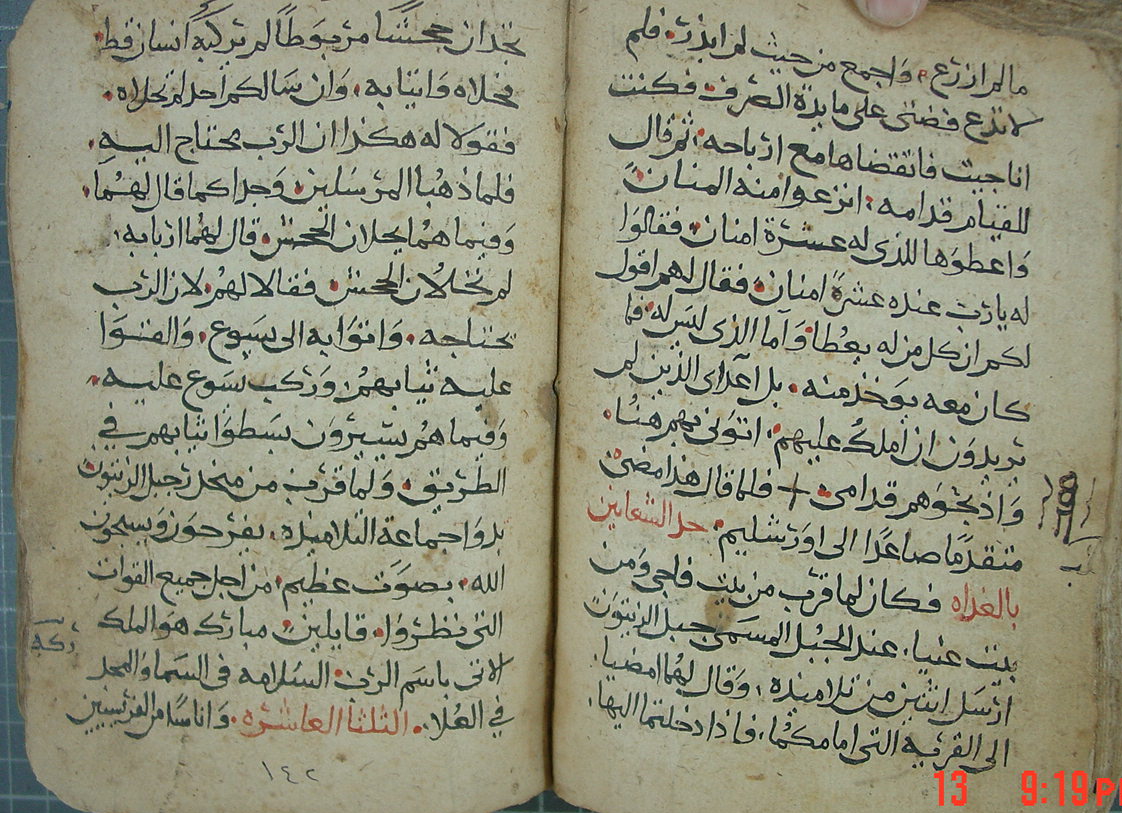 مالم ازرع، واجمع من حيث لم ابذر. فلم
لا تدع فضتي على مايدة الصرف فكنت
انا جيت فاتقضاها مع ارباحه: ثم قال
للقيام قدامه: انزعوا منه المنان
واعطوها للذي له عسرة امنان. فقالوا
له يارب عنده عشرة امنان. فقال لهم اقول
لكم ان كل من له يعطا. واما الذي ليس له فما
كان معه يوخذ منه. بل اعداي الذين لم
يريدون ان املك عليهم، اتوني بهم هنا.
واذبحوهم قدامي. + فلما قال هذا مضى
متقدما صاعدا الى اورشليم. حد الشعانين
بالغداه فكان لما قرب من بيت فاجي ومن
بيت عنيا، عند الجبل المسمى جبل الزيتون
ارسل اثنين من تلاميذه، وقال لهما امضيا
الى القرية التي امامكما، فاذا دخلتما اليها.
تجدان جحشا مربوطا لم يركبه انسان قط
فحلاه واتيا به، وان سالكم احد لم تحلاه.
فقولا له هكذا ان الرب يحتاج اليه.
فلما ذهبا المرسلين وجدا كما قال لهما.
وفيما هما يحلان الجحش قال لهما اربابه:
لم تحلان الجحش فقالا لهم لان الرب
يحتاجه. واتوا به الى يسوع. والقوا
عليه ثيابهم وركب يسوع عليه.
وفيما هم يسيرون بسطوا ثيابهم في
الطريق. ولما قرب من منحدر جبل الزيتون
بدوا جماعة التلاميذه. يفرحون ويسبحون
الله. بصوت عظيم. من اجل جميع القوات
التي نظروا. قايلين مبارك هو الملك
الاتي باسم الرب السلامه في السما والمجد
في العلا. الثلثا العاشره. واناسا من الفريسيين
١٤٢
13 9:19